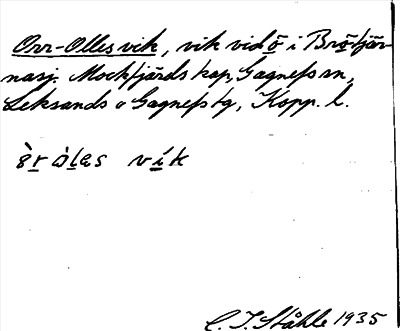 Orr-Ollesvik, vik vid ö i Bröttjär-
nasj. Mockfjärds kap, Gagnefs sn,
Leksands o Gagnefs tg, Kopp. l.
vík
C. I. Ståhle 1935